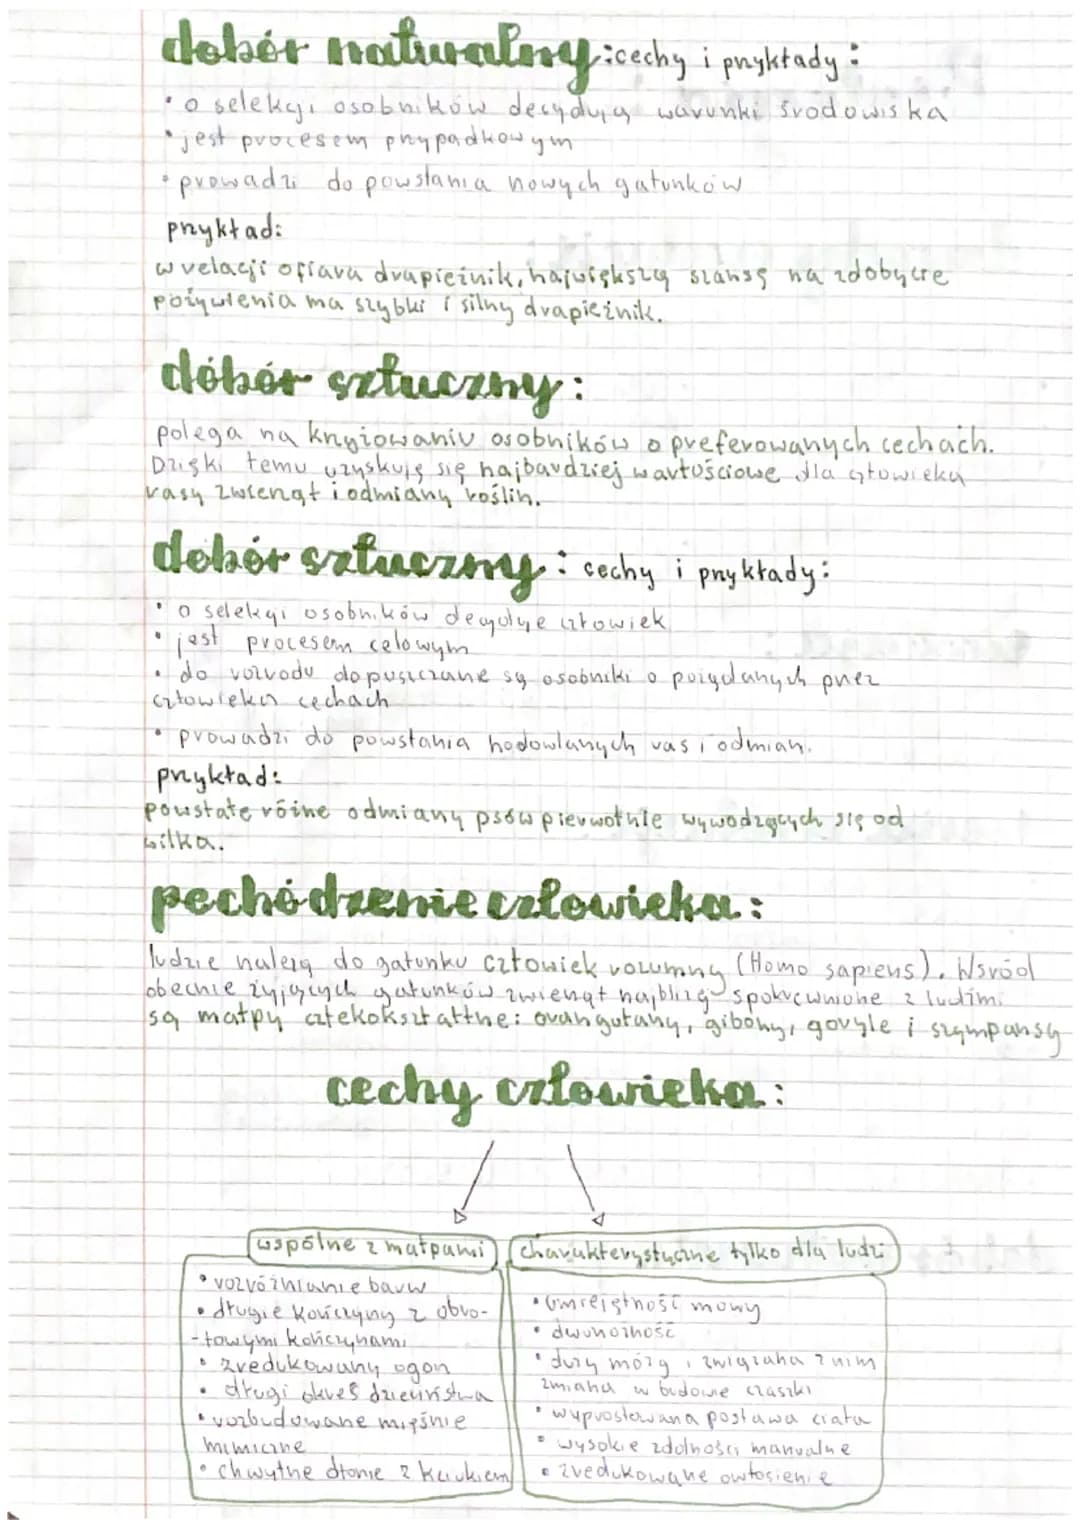 dobór naturalny: cechy i przykłady:
• o selekcji osobników decydują warunki środowiska
• jest procesem przypadkowym
• prowadzi do powstania nowych gatunków
przykład:
w relacji ofiara drapieżnik, największą szansę na zdobycie
pożywienia ma szybki i silny drapieżnik.
dobór sztuczny:
polega na krzyżowaniu osobników o preferowanych cechach.
Dzięki temu uzyskuję się najbardziej wartościowe dla człowieka
rasy zwierząt i odmiany roślin.
dobór sztuczny: cechy i przykłady:
• o selekcji osobników decyduje człowiek
• jest procesem celowym
• do rozrodu dopuszczane są osobniki o pożądanych przez
człowieka cechach
• prowadzi do powstania hodowlanych ras i odmian.
przykład:
powstałe różne odmiany psów pierwotnie wywodzących się od
wilka.
pochodzenie człowieka:
ludzie należą do gatunku człowiek rozumny (Homo sapiens). Wśród
obecnie żyjących gatunków zwierząt najbliżej spokrewnione z ludźmi
są małpy człekokształtne: orangutany, gibony, goryle i szympansy
cechy człowieka:
wspólne z małpami
• rozróżnianie barw
• długie kończyny z obro-
-towymi kończynami
• zredukowany ogon
• długi okres dzieciństwa
• rozbudowane mięśnie
mimiczne
• chwytne dłonie z kciukiem
charakterystyczne tylko dla ludzi
• umiejętność mowy
• dwunożność
• duży mózg i związana z nim
zmiana w budowie czaszki
• wyprostowana postawa ciała
• wysokie zdolności manualne
• zredukowane owłosienie